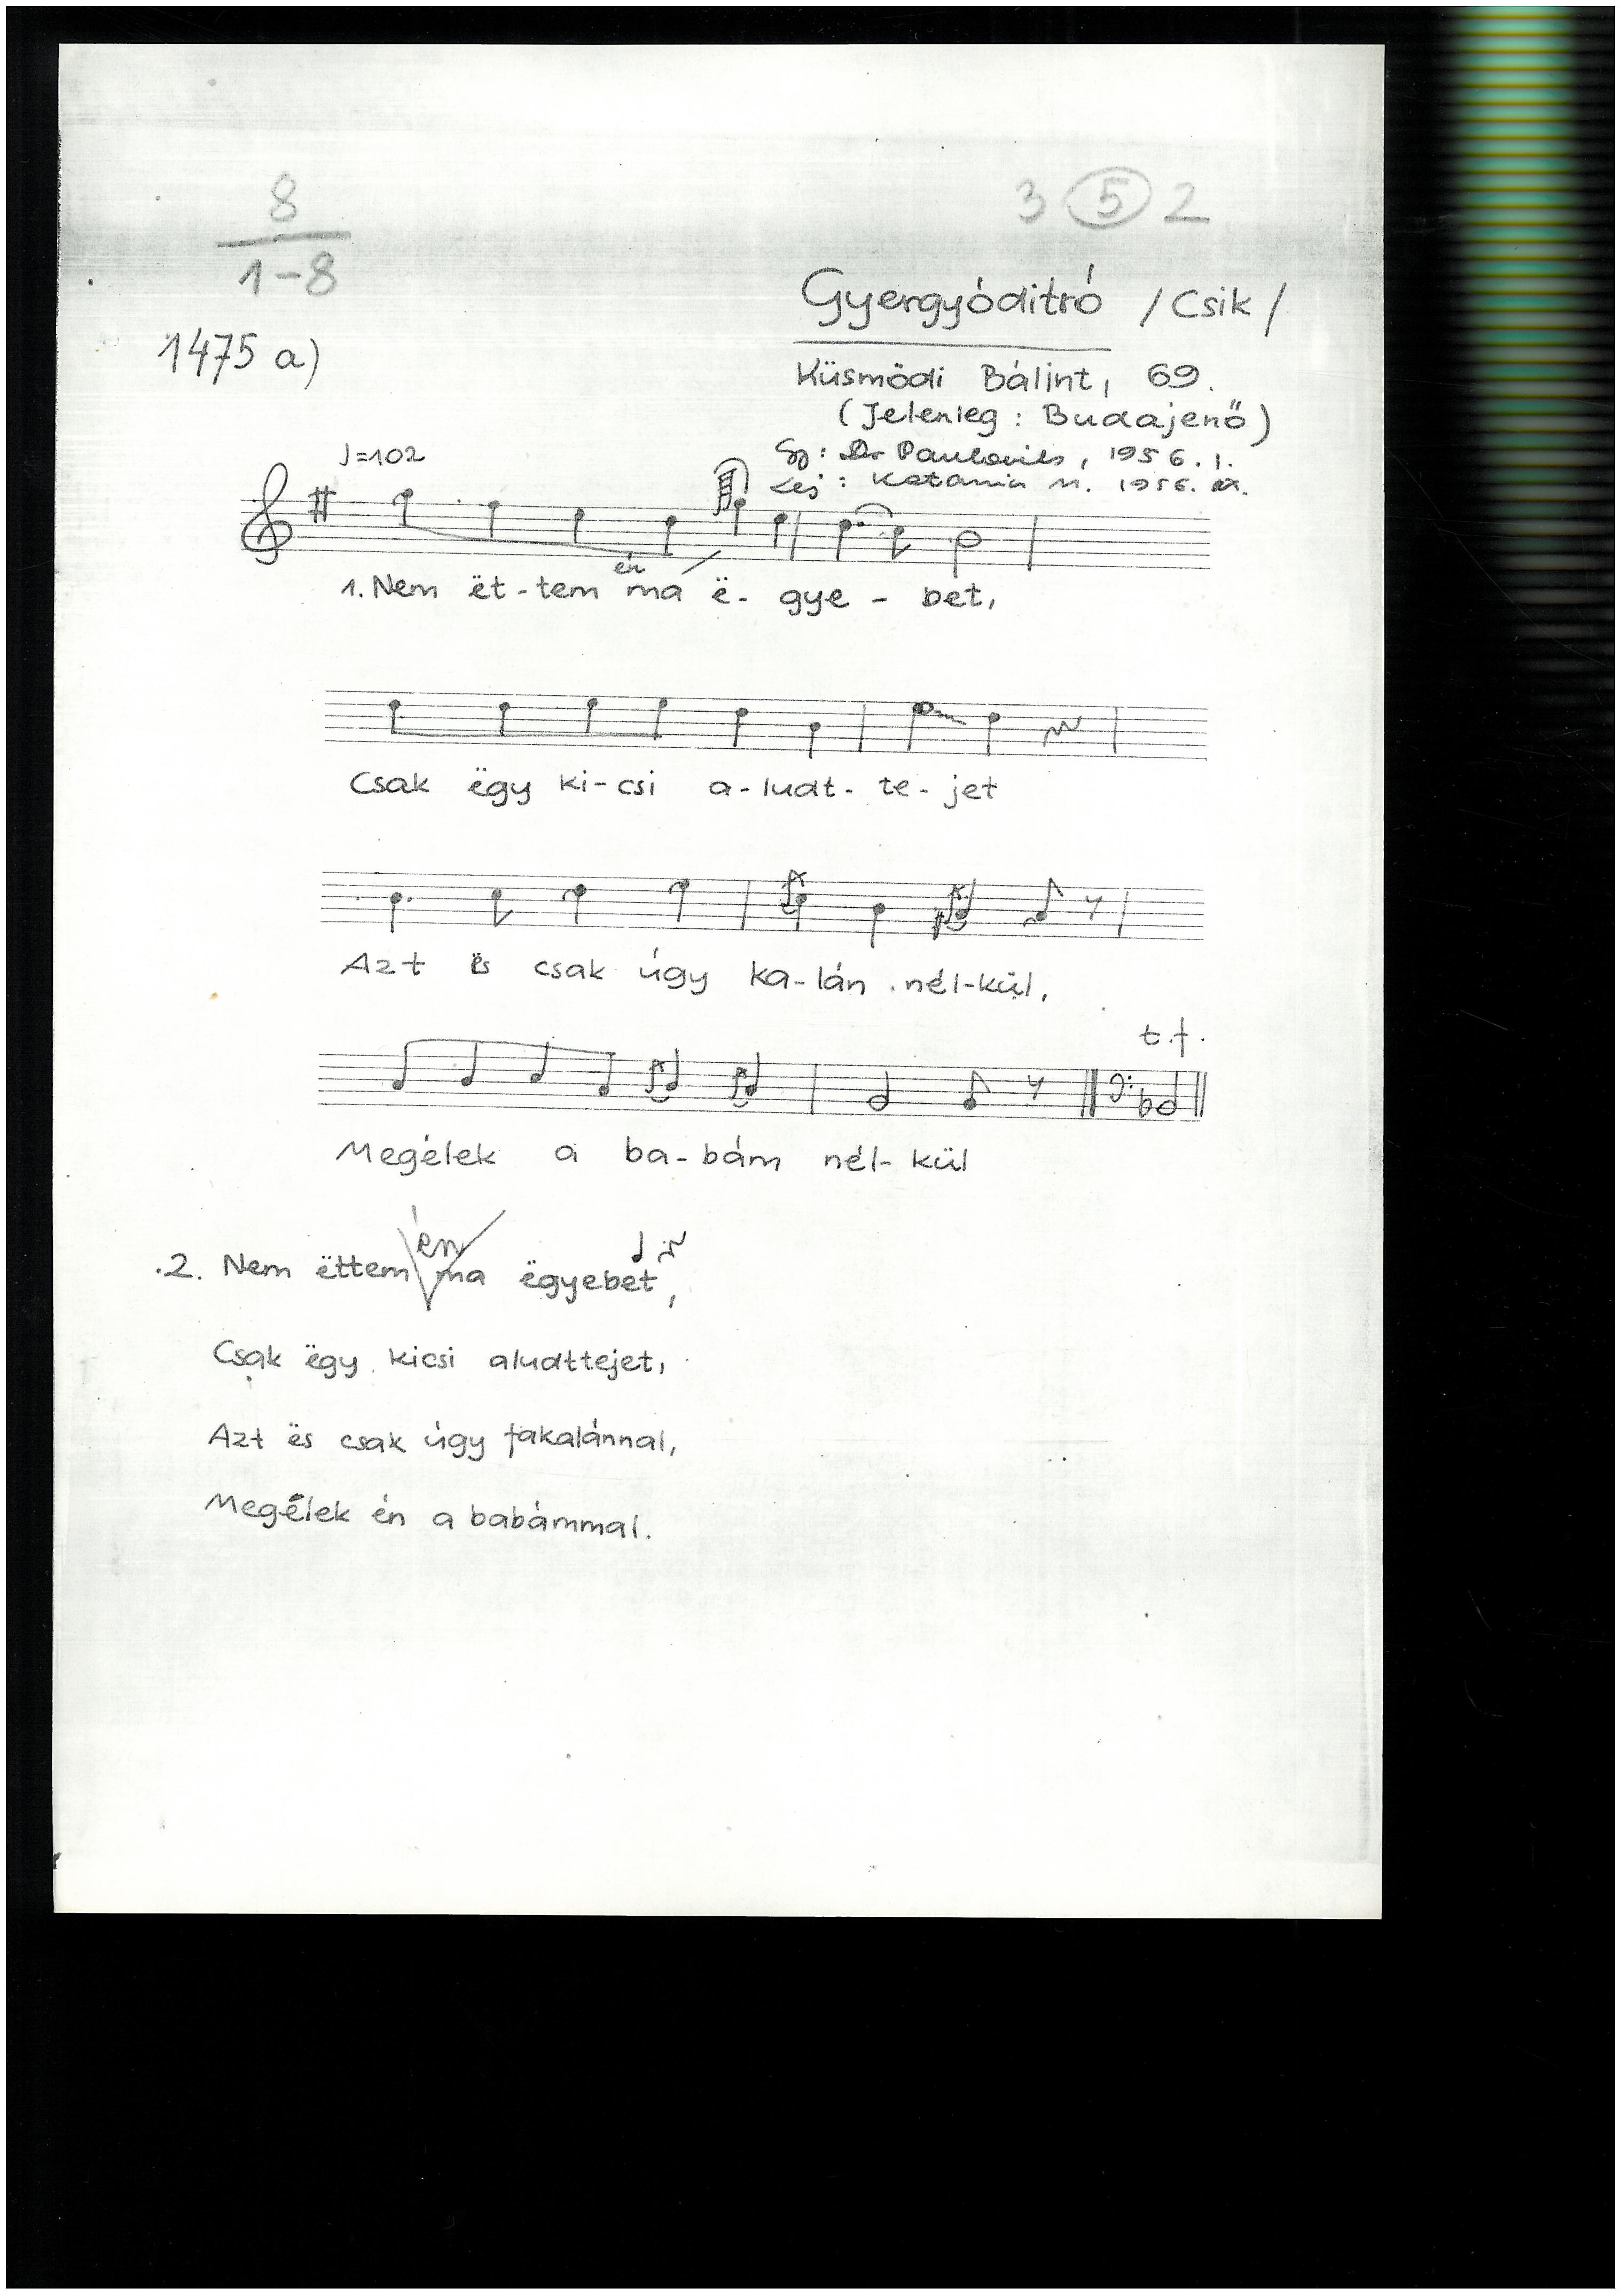 8
1-8
3 5 2
1475 a)
Gyergyóditró /Csik/
Küsmödi Bálint, 69.
(Jelenleg: Budajenő)
♩=102
Gy: Dr Paulovits, 1956. I.
Lej: Katanin M. 1956.
én
1. Nem ët-tem ma ë-gye-bet,
Csak ëgy ki-csi a-ludt-te-jet
Azt ës csak úgy ka-lán nél-kül,
t.f.
Megélek a ba-bám nél-kül
én
2. Nem ëttem ma ëgyebet,
Csak ëgy kicsi aludttejet,
Azt ës csak úgy fakalánnal,
Megélek én a babámmal.